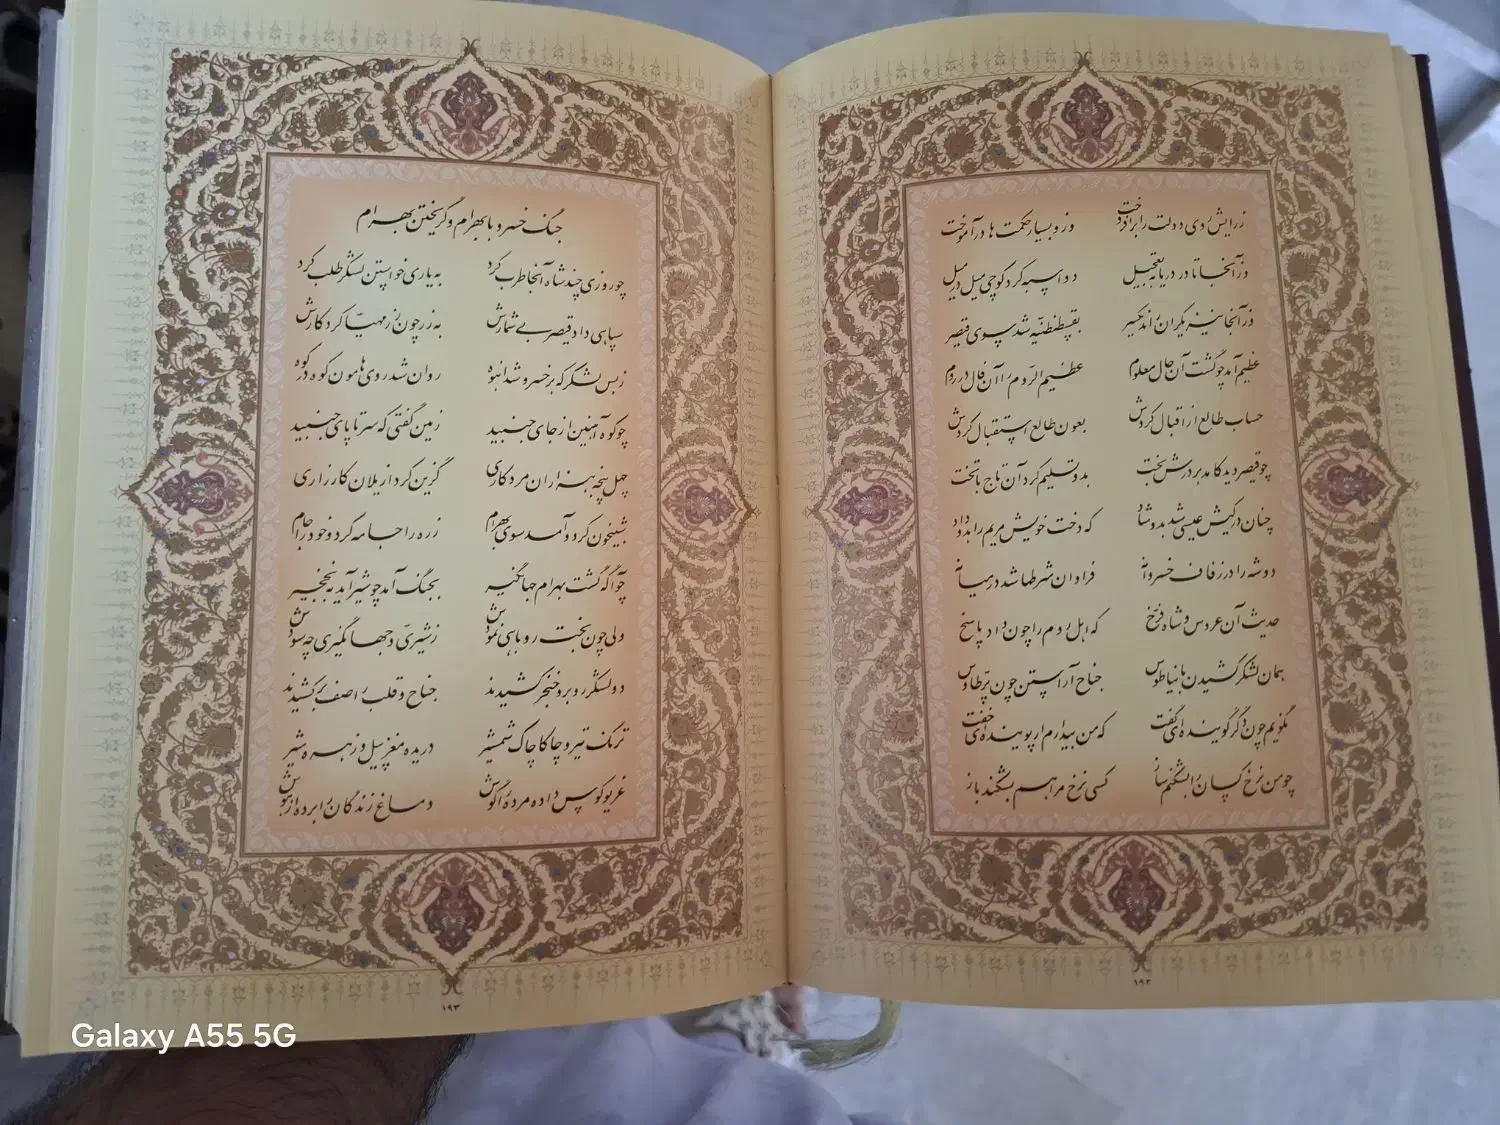 ز رایش روی دولت را برافروخت وزو بسیار حکمت ها در آموخت
وز آنجا تا در دریا به تعجیل دو اسبه کرد کوچی میل در میل
وز آنجا نیز یکران راند یکسر به قسطنطنیه شد سوی قیصر
عظیم آمد چو گشت آن حال معلوم عظیم الروم را آن فال در روم
حساب طالع از اقبال کردش بعون طالع استقبال کردش
چو قیصر دید کامد بر درش بخت بدو تسلیم کرد آن تاج با تخت
چنان در کیش عیسی شد بدو شاد که دخت خویش مریم را بدو داد
دو شه را در زفاف خسروانه فراوان شرطها شد در میانه
حدیث آن عروس و شاه فرخ که اهل روم را چون داد پاسخ
همان لشکر کشیدن با نیاطوس جناح آراستن چون پر طاوس
نگویم چون دگر گوینده ای گفت که من بیدارم ار پوینده ای خفت
چو من نرخ کسان را بشکنم ساز کسی نرخ مرا هم بشکند باز
۱۹۲
جنگ خسرو با بهرام و گریختن بهرام
چو روزی چند شاه آنجا طرب کرد به یاری خواستن لشکر طلب کرد
سپاهی داد قیصر بی شمارش به زر چون زر مهیا کرد کارش
ز بس لشکر که بر خسرو شد انبوه روان شد روی هامون کوه در کوه
چو کوه آهنین از جای جنبید زمین گفتی که سر تا پای جنبید
چهل پنجه هزاران مرد کاری گزین کرد از یلان کارزاری
شبیخون کرد و آمد سوی بهرام زره را جامه کرد و خود را جام
چو آگه گشت بهرام جهانگیر بجنگ آمد چو شیر آید به نخجیر
ولی چون بخت روباهی نمودش ز شیری و جهانگیری چه سودش
دو لشکر رو برو خنجر کشیدند جناح و قلب را صف بر کشیدند
ترنگ تیر و چاکاچاک شمشیر دریده مغز پیل و زهره شیر
غریو کوس داده مرده را گوش دماغ زندگان را برده از هوش
۱۹۳
Galaxy A55 5G